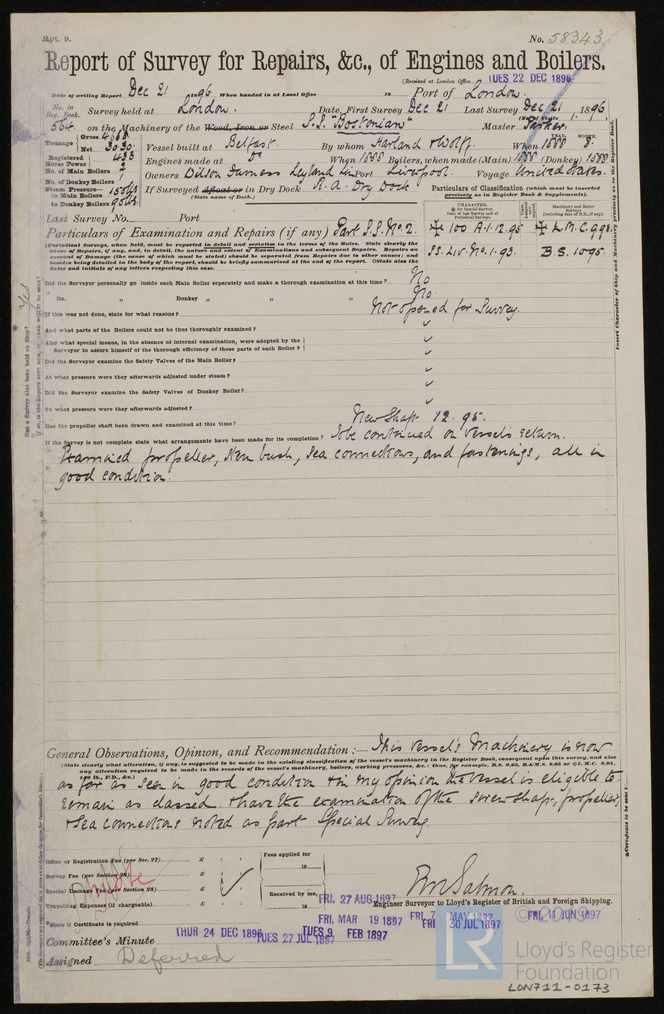 Rpt. 9.
No. 58343
Report of Survey for Repairs, &c., of Engines and Boilers.
(Received at London Office TUES 22 DEC 1896
Date of writing Report Dec 21 1896 When handed in at Local Office 18 Port of London.
No. in Reg. Book. Survey held at London. Date, First Survey Dec 21 Last Survey Dec 21 1896
564 on the Machinery of the Wood, Iron or Steel S.S. "Bostonian" Master Parker
Tonnage Gross 4668 Net 3030 Vessel built at Belfast. By whom Harland & Wolff. When 1888 8.
Registered Horse Power 433 Engines made at Do When 1888 Boilers, when made (Main) 1888 (Donkey) 1888
No. of Main Boilers 2 Owners Wilson Furness Leyland Ln Port Liverpool. Voyage United States.
No. of Donkey Boilers 1
Steam Pressure in Main Boilers
in Donkey Boilers 90 lbs.
If Surveyed Afloat or in Dry Dock R. A. Dry Dock
(State name of Dock.)
Particulars of Classification (which must be inserted precisely as in Register Book & Supplements).
Last Survey No. Port
Particulars of Examination and Repairs (if any) Part S.S. No. 2.
100 A.1. 12.95
L.M.C. 9.93
SS. Liv. No. 1-93.
B.S. 10.95.
(Periodical Surveys, when held, must be reported in detail and seriatim in the terms of the Rules. State clearly the
cause of Repairs, if any, and, in detail, the nature and extent of Examinations and subsequent Repairs. Repairs on
account of Damage (the cause of which must be stated) should be separated from Repairs due to other causes; and
besides being detailed in the body of the report, should be briefly summarised at the end of the report. State also the
dates and initials of any letters respecting this case.
Did the Surveyor personally go inside each Main Boiler separately and make a thorough examination at this time? No
Do. " Donkey " " " No
If this was not done, state for what reasons? Not opened for Survey.
And what parts of the Boilers could not be thoroughly examined?
Also what special means, in the absence of internal examination, were adopted by the
Surveyor to assure himself of the thorough efficiency of those parts of each Boiler?
Did the Surveyor examine the Safety Valves of the Main Boiler?
At what pressure were they afterwards adjusted under steam?
Did the Surveyor examine the Safety Valves of Donkey Boiler?
To what pressure were they afterwards adjusted?
Has the propeller shaft been drawn and examined at this time? New Shaft 12.95.
If the Survey is not complete state what arrangements have been made for its completion? To be continued on vessel's return.
Examined propeller, stern bush, sea connections, and fastenings, all in
good condition.
General Observations, Opinion, and Recommendation:— This vessel's Machinery is now
(State clearly what alteration, if any, is suggested to be made in the existing classification of the vessel's machinery in the Register Book, consequent upon this survey, and also
any alteration required to be made in the records of the vessel's machinery, boilers, working pressures, &c.
as far as seen in good condition & in my opinion the vessel is eligible to
remain as classed. & have the examination of the screw shaft, propeller,
& sea connections noted as part Special Survey.
Office or Registration Fee (per Sec. 27) £ : :
Fees applied for
18
Survey Fee (per Section 28) £ : :
Special Damage Fee (per Section 28) £
Received by me,
Travelling Expenses (if chargeable) £ : :
18
R M Salmon.
Engineer Surveyor to Lloyd's Register of British and Foreign Shipping.
FRI. 27 AUG 1897
FRI. MAR 19 1897
FRI. 7 MAY 1897
FRI. 11 JUN 1897
State if Certificate is required
THUR 24 DEC 1896
TUES 27 JUL 1897
TUES 9 FEB 1897
FRI 30 JUL 1897
Committee's Minute
Assigned Deferred
LR
Lloyd's Register
Foundation
LON711-0173